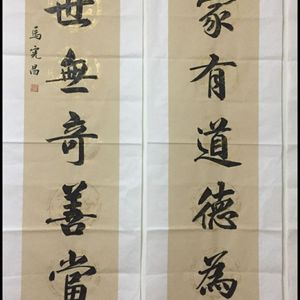 家有道德為
世無奇善當
馬昌